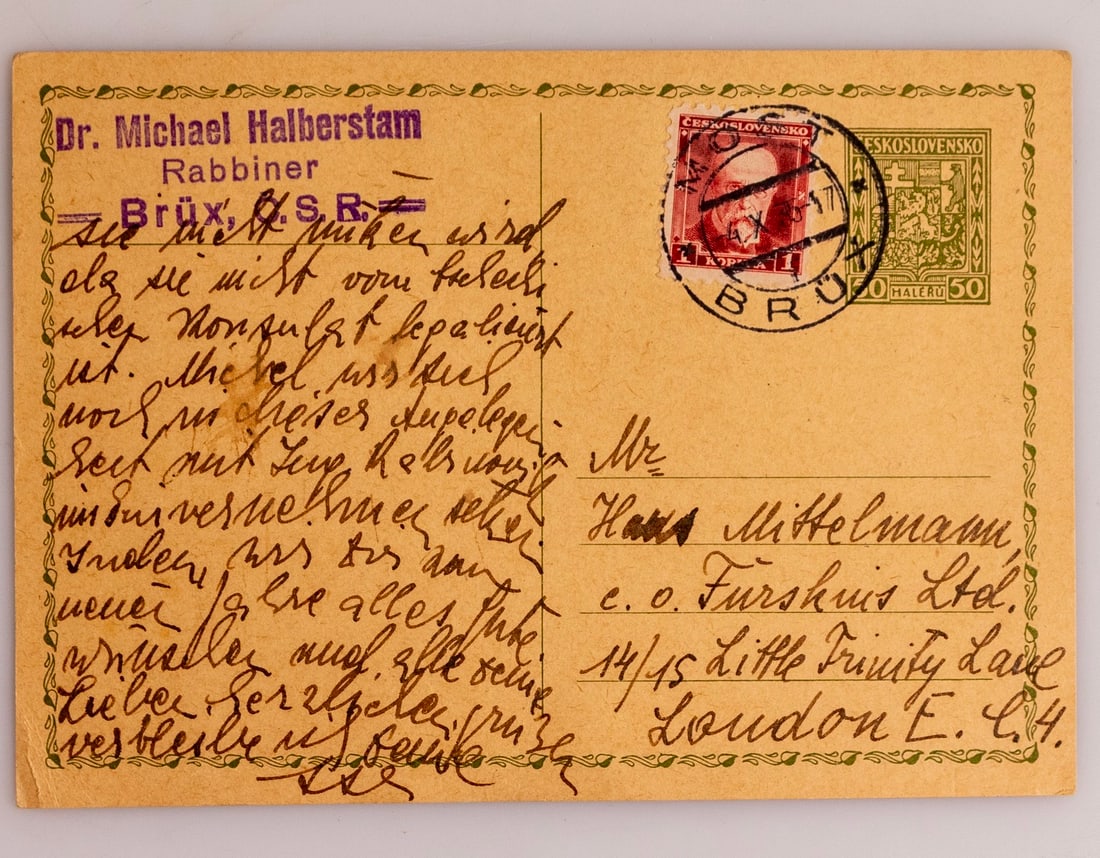 Dr. Michael Halberstam
Rabbiner
Brüx, Č.S.R.
sie nicht nützen wird
da sie nicht vom tschechi
schen Konsulat legalisiert
ist. Michel wird sich
noch in dieser Angelegen
heit mit Ing.
ins Einvernehmen setzen.
Indem wir Dir zum
neuen Jahre alles Gute
wünschen und alle Deine
Lieben herzlichen grüßen
verbleibe ich Deine
ČESKOSLOVENSKO
1 KORUNA 1
MOST
4.X 17
1
BRÜX
ČESKOSLOVENSKO
50 HALÉŘŮ 50
Mr
Hans Mittelmann,
c. o. Fürskins Ltd.
14/15 Little Trinity Lane
London E. C. 4.